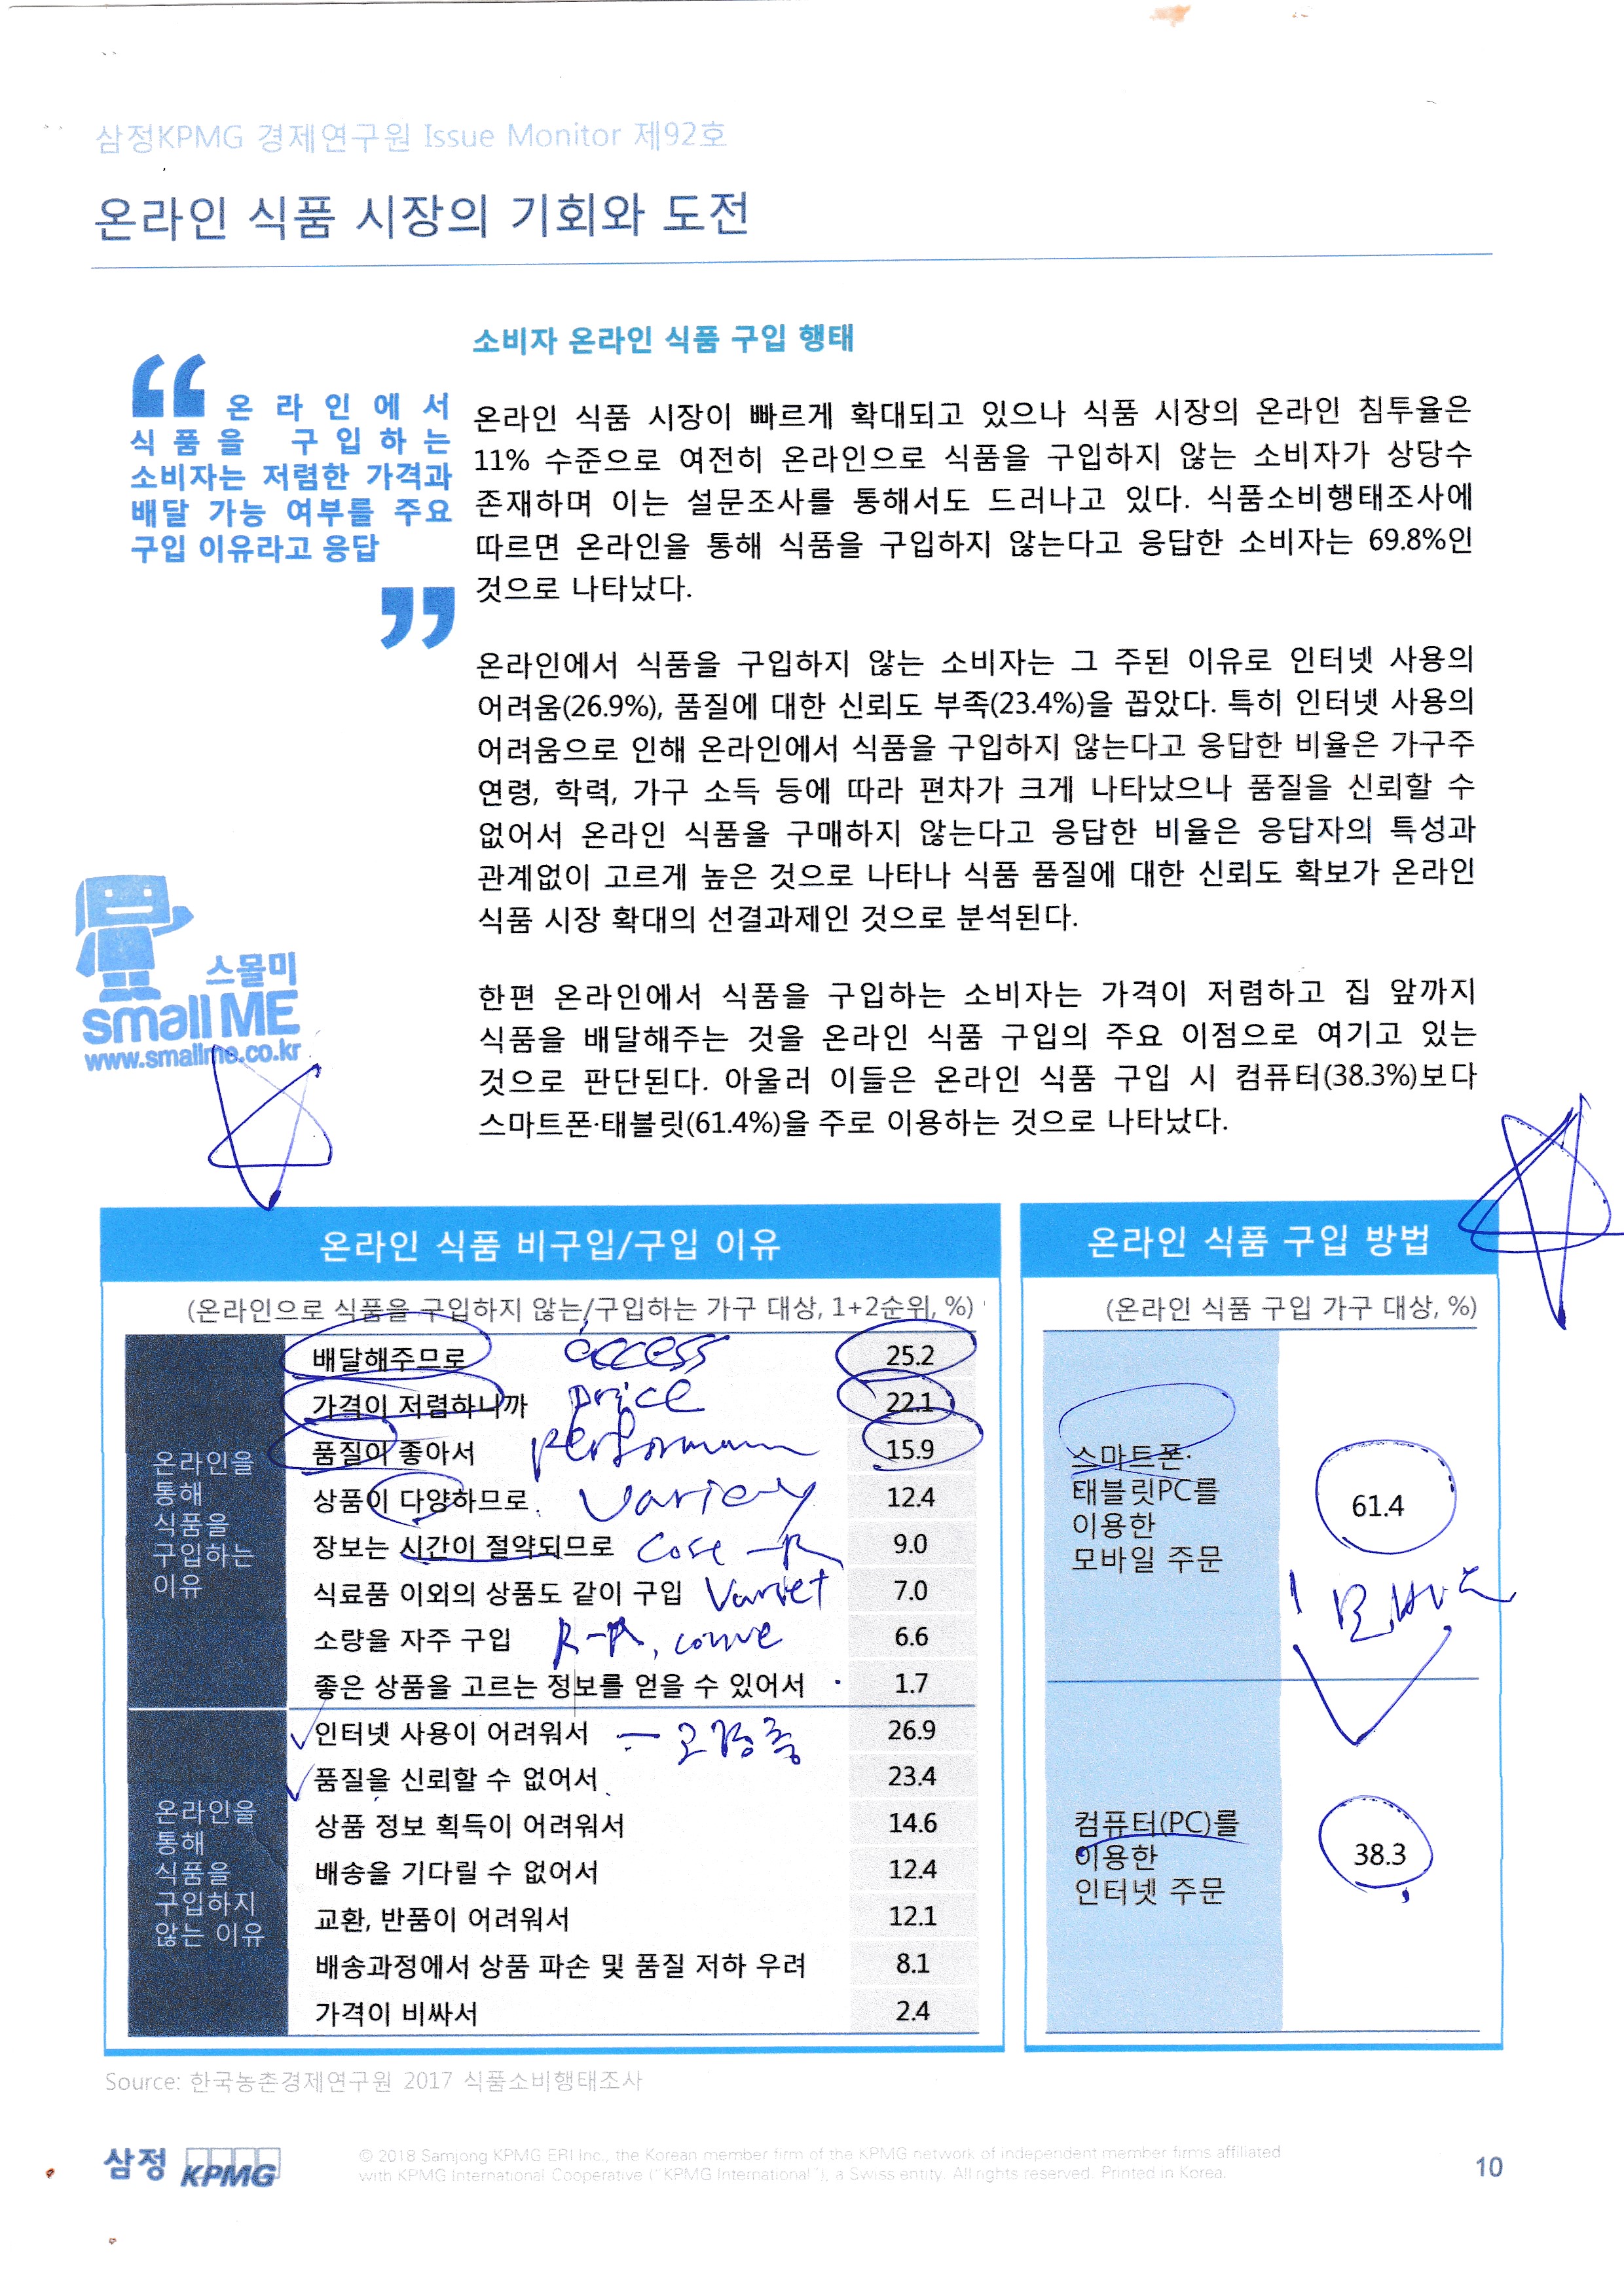 삼정KPMG 경제연구원 Issue Monitor 제92호
온라인 식품 시장의 기회와 도전
소비자 온라인 식품 구입 행태
“ 온라인에서
식품을 구입하는
소비자는 저렴한 가격과
배달 가능 여부를 주요
구입 이유라고 응답
”
온라인 식품 시장이 빠르게 확대되고 있으나 식품 시장의 온라인 침투율은
11% 수준으로 여전히 온라인으로 식품을 구입하지 않는 소비자가 상당수
존재하며 이는 설문조사를 통해서도 드러나고 있다. 식품소비행태조사에
따르면 온라인을 통해 식품을 구입하지 않는다고 응답한 소비자는 69.8%인
것으로 나타났다.
온라인에서 식품을 구입하지 않는 소비자는 그 주된 이유로 인터넷 사용의
어려움(26.9%), 품질에 대한 신뢰도 부족(23.4%)을 꼽았다. 특히 인터넷 사용의
어려움으로 인해 온라인에서 식품을 구입하지 않는다고 응답한 비율은 가구주
연령, 학력, 가구 소득 등에 따라 편차가 크게 나타났으나 품질을 신뢰할 수
없어서 온라인 식품을 구매하지 않는다고 응답한 비율은 응답자의 특성과
관계없이 고르게 높은 것으로 나타나 식품 품질에 대한 신뢰도 확보가 온라인
식품 시장 확대의 선결과제인 것으로 분석된다.
스몰미
smallME
www.smallme.co.kr
한편 온라인에서 식품을 구입하는 소비자는 가격이 저렴하고 집 앞까지
식품을 배달해주는 것을 온라인 식품 구입의 주요 이점으로 여기고 있는
것으로 판단된다. 아울러 이들은 온라인 식품 구입 시 컴퓨터(38.3%)보다
스마트폰·태블릿(61.4%)을 주로 이용하는 것으로 나타났다.
온라인 식품 비구입/구입 이유
(온라인으로 식품을 구입하지 않는/구입하는 가구 대상, 1+2순위, %)
온라인을
통해
식품을
구입하는
이유
배달해주므로 access 25.2
가격이 저렴하니까 price 22.1
품질이 좋아서 15.9
상품이 다양하므로 12.4
장보는 시간이 절약되므로 9.0
식료품 이외의 상품도 같이 구입 7.0
소량을 자주 구입 6.6
좋은 상품을 고르는 정보를 얻을 수 있어서 1.7
온라인을
통해
식품을
구입하지
않는 이유
인터넷 사용이 어려워서 26.9
품질을 신뢰할 수 없어서 23.4
상품 정보 획득이 어려워서 14.6
배송을 기다릴 수 없어서 12.4
교환, 반품이 어려워서 12.1
배송과정에서 상품 파손 및 품질 저하 우려 8.1
가격이 비싸서 2.4
온라인 식품 구입 방법
(온라인 식품 구입 가구 대상, %)
스마트폰·
태블릿PC를
이용한
모바일 주문
61.4
컴퓨터(PC)를
이용한
인터넷 주문
38.3
Source: 한국농촌경제연구원 2017 식품소비행태조사
삼정 KPMG
© 2018 Samjong KPMG ERI Inc., the Korean member firm of the KPMG network of independent member firms affiliated
with KPMG International Cooperative (“KPMG International”), a Swiss entity. All rights reserved. Printed in Korea.
10